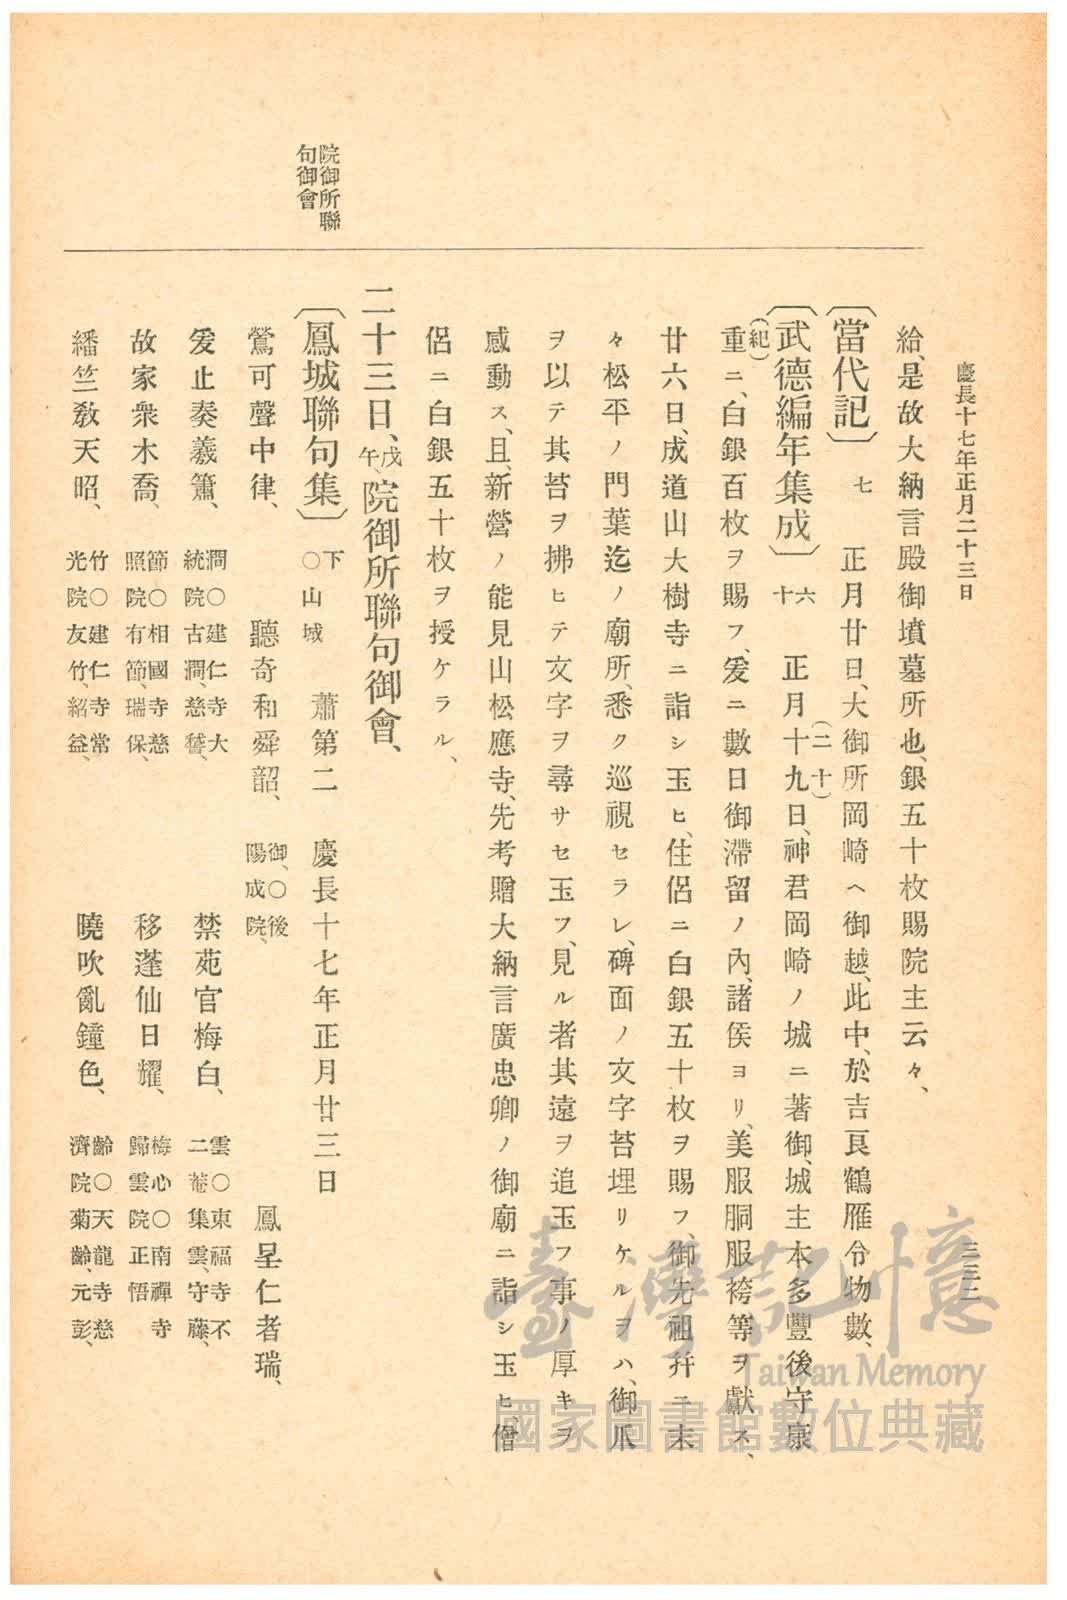 慶長十七年正月二十三日
三三二
給、是故大納言殿御墳墓所也、銀五十枚賜院主云々、
〔當代記〕七 正月廿日、大御所岡崎ヘ御越、此中、於吉良鶴雁令物數、
〔武德編年集成〕六十 正月十九日、(二十)神君岡崎ノ城ニ著御、城主本多豐後守康
(紀)
重ニ、白銀百枚ヲ賜フ、爰ニ數日御滯留ノ內、諸侯ヨリ、美服胴服袴等ヲ獻ス、
廿六日、成道山大樹寺ニ詣シ玉ヒ、住侶ニ白銀五十枚ヲ賜フ、御先祖幷ニ末
々松平ノ門葉迄ノ廟所、悉ク巡視セラレ、碑面ノ文字苔埋リケルヲハ、御爪
ヲ以テ其苔ヲ拂ヒテ文字ヲ尋サセ玉フ、見ル者其遠ヲ追玉フ事ノ厚キヲ
感動ス、且、新營ノ能見山松應寺、先考贈大納言廣忠卿ノ御廟ニ詣シ玉ヒ、僧
侶ニ白銀五十枚ヲ授ケラル、
院御所聯句御會
二十三日、戊午、院御所聯句御會、
〔鳳城聯句集〕下○山城 蕭第二 慶長十七年正月廿三日
鶯可聲中律、 聽奇和舜韶、御、○後陽成院、 鳳呈仁者瑞、
爰止奏羲簫、澗○建仁寺大統院古澗、慈稽、 禁苑官梅白、雲○東福寺不二菴集雲、守藤、
故家衆木喬、節○相國寺慈照院有節、瑞保、 移蓬仙日耀、梅心○南禪寺歸雲院正悟
繙竺敎天昭、竹○建仁寺常光院友竹、紹益、 曉吹亂鐘色、齡○天龍寺慈濟院菊齡、元彭、
臺灣記憶
Taiwan Memory
國家圖書館數位典藏